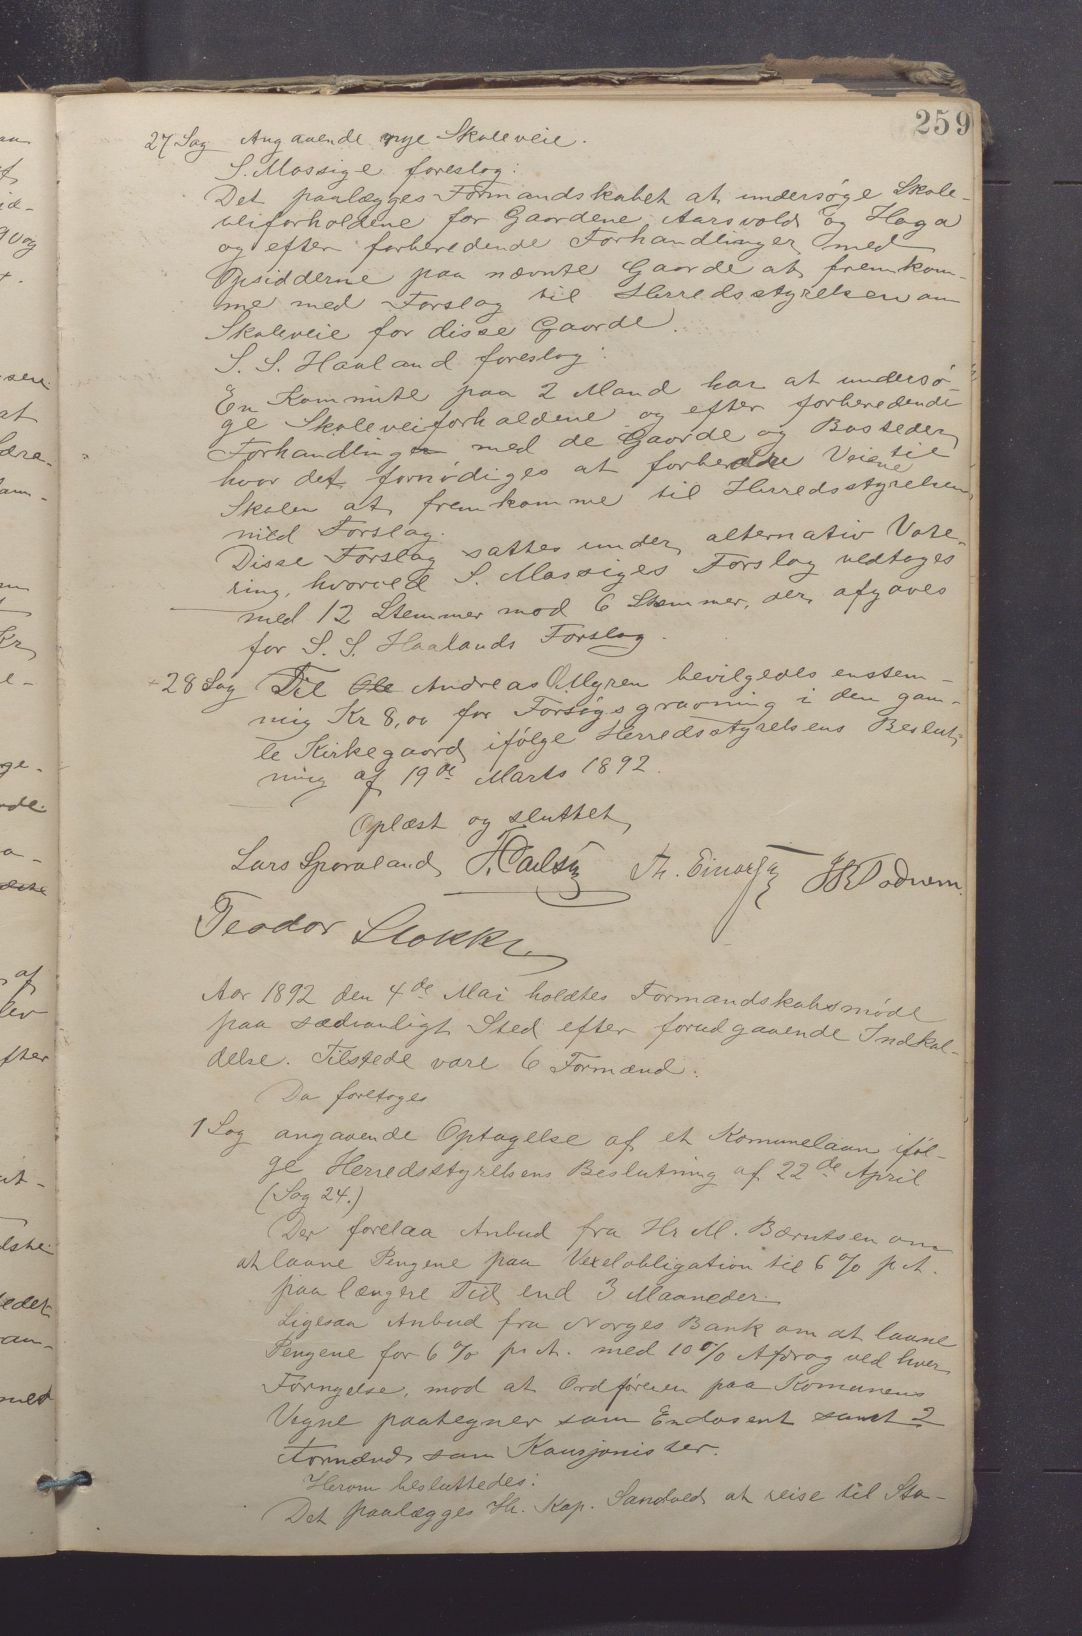 259
27 Sag Angaaende nye Skoleveie.
S. Mossige foreslog:
Det paalægges Formandskabet at undersøge Skole-
veiforholdene for Gaardene Aarsvold og Haga
og efter forberedende Forhandlinger med
Opsidderne paa nævnte Gaarde at fremkom-
me med Forslag til Herredsstyrelsen om
Skoleveie for disse Gaarde.
S. S. Haaland foreslog:
En Kommite paa 2 Mand har at undersø-
ge Skoleveiforholdene og efter forberedende
Forhandling med de Gaarde og Bosteder,
hvor det fornødiges at forbedre Veiene til
Skolen at fremkomme til Herredsstyrelsen
med Forslag.
Disse Forslag sattes under alternativ Vote-
ring, hvorved S. Mossiges Forslag vedtoges
med 12 Stemmer mod 6 Stemmer, der afgaves
for S. S. Haalands Forslag.
28 Sag Til Ole Andreas O. Myren bevilgedes enstem-
mig Kr 8,00 for Forsøgsgravning i den gam-
le Kirkegaard ifølge Herredsstyrelsens Beslut-
ning af 19de Marts 1892.
Oplæst og sluttet
Lars Sporaland Th. Einarsen
Teodor Stokke
Aar 1892 den 4de Mai holdtes Formandskabsmøde
paa sædvanligt Sted efter forudgaaende Indkal-
delse. Tilstede vare 6 Formænd.
Da foretoges
1 Sag angaaende Optagelse af et Komunelaan iføl-
ge Herredsstyrelsens Beslutning af 22de April
(Sag 24.)
Der forelaa Anbud fra Hr M. Bærntsen om
at laane Pengene paa Vexelobligation til 6 % p.A.
paa længere Tid end 3 Maaneder.
Ligesaa Anbud fra Norges Bank om at laane
Pengene for 6 % pr A. med 10 % Afdrag ved hver
Fornyelse, mod at Ordføreren paa Komunens
Vegne paategner som Endosent samt 2
Formænd som Kausjonister.
Herom besluttedes:
Det paalægges Hr. Kap. Sandved at reise til Sta-